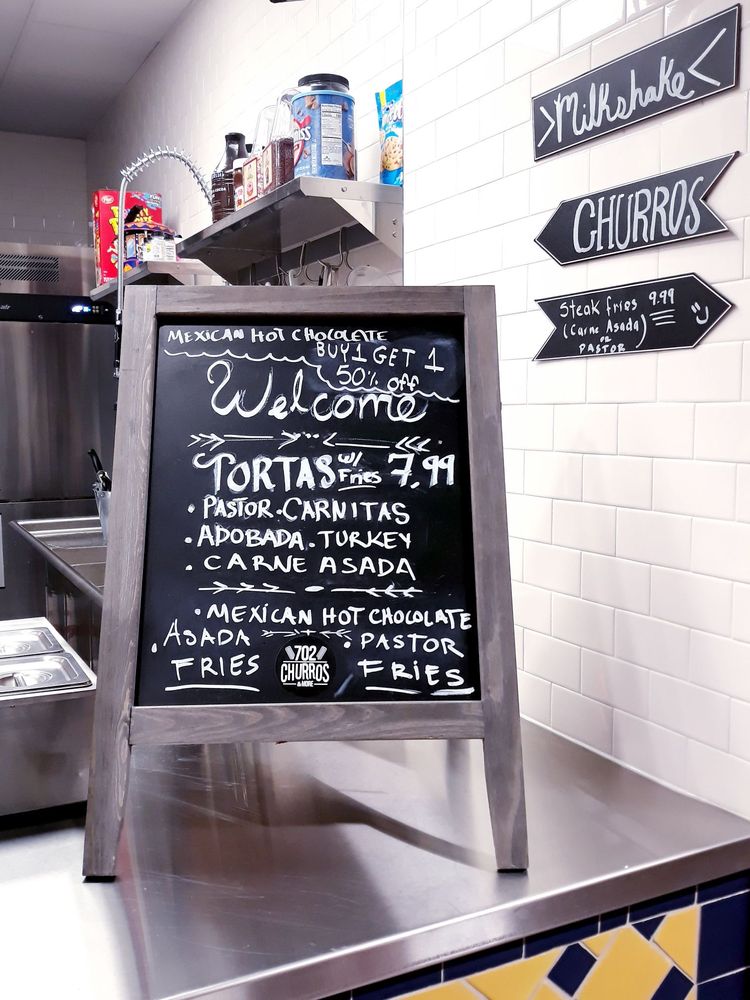 MEXICAN HOT CHOCOLATE
BUY 1 GET 1
50% off
Welcome
TORTAS w/ Fries 7.99
• PASTOR • CARNITAS
• ADOBADA • TURKEY
• CARNE ASADA
• MEXICAN HOT CHOCOLATE
• ASADA FRIES
• PASTOR FRIES
702
CHURROS
& MORE
>Milkshake<
CHURROS
Steak fries 9.99
(Carne Asada)
OR
PASTOR
Post